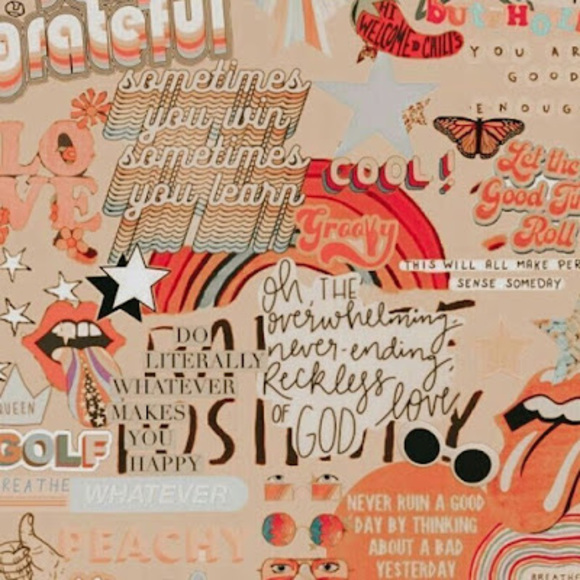 grateful
HI
WELCOME TO CHILI'S
but HO
YOU AR
GOOD
ENOUG
sometimes
you win
sometimes
you learn
LO
VE
COOL!
Groovy
Let the
Good Ti
Roll
THIS WILL ALL MAKE PER
SENSE SOMEDAY
Oh, THE
overwhelming,
never-ending,
Reckless
love
OF GOD
DO
LITERALLY
WHATEVER
MAKES
YOU
HAPPY
QUEEN
GOLF
BREATHE
WHATEVER
PEACHY
NEVER RUIN A GOOD
DAY BY THINKING
ABOUT A BAD
YESTERDAY
BREATHE